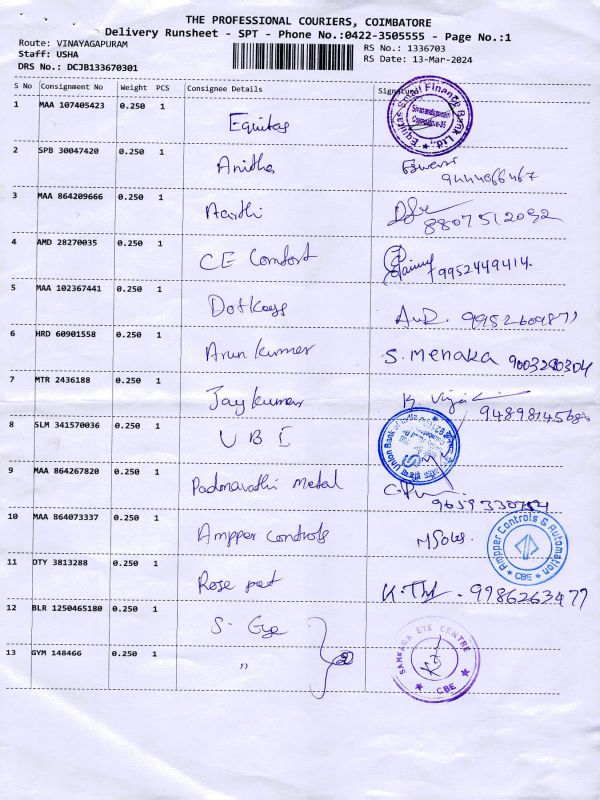 THE PROFESSIONAL COURIERS, COIMBATORE
Delivery Runsheet - SPT - Phone No.:0422-3505555 - Page No.:1
Route: VINAYAGAPURAM
Staff: USHA
DRS No.: DCJB133670301
RS No.: 1336703
RS Date: 13-Mar-2024
S No Consignment No Weight PCS Consignee Details Signature
1 MAA 107405423 0.250 1 Equitas
Equitas Small Finance Bank Ltd.,
Sivanandapuram
Coimbatore-35
2 SPB 30047420 0.250 1 Anitha Eswari
9444066467
3 MAA 864209666 0.250 1 Aarthi
8807512032
4 AMD 28270035 0.250 1 CE Comfort 9952449414.
5 MAA 102367441 0.250 1 Dotkeys
6 HRD 60901558 0.250 1 Arun kumar S. Menaka 9003280304
7 MTR 2436188 0.250 1 Jay kumar
8 SLM 341570036 0.250 1 UBI
Union Bank of India
9 MAA 864267820 0.250 1 Padmavathi Metal
10 MAA 864073337 0.250 1 Ampper Controls
Ampper Controls & Automation
CBE
11 OTY 3813288 0.250 1 Rose pet 9786263477
12 BLR 1250465180 0.250 1 S- Eye
SANKARA EYE CENTRE
CBE
13 GYM 148466 0.250 1 "